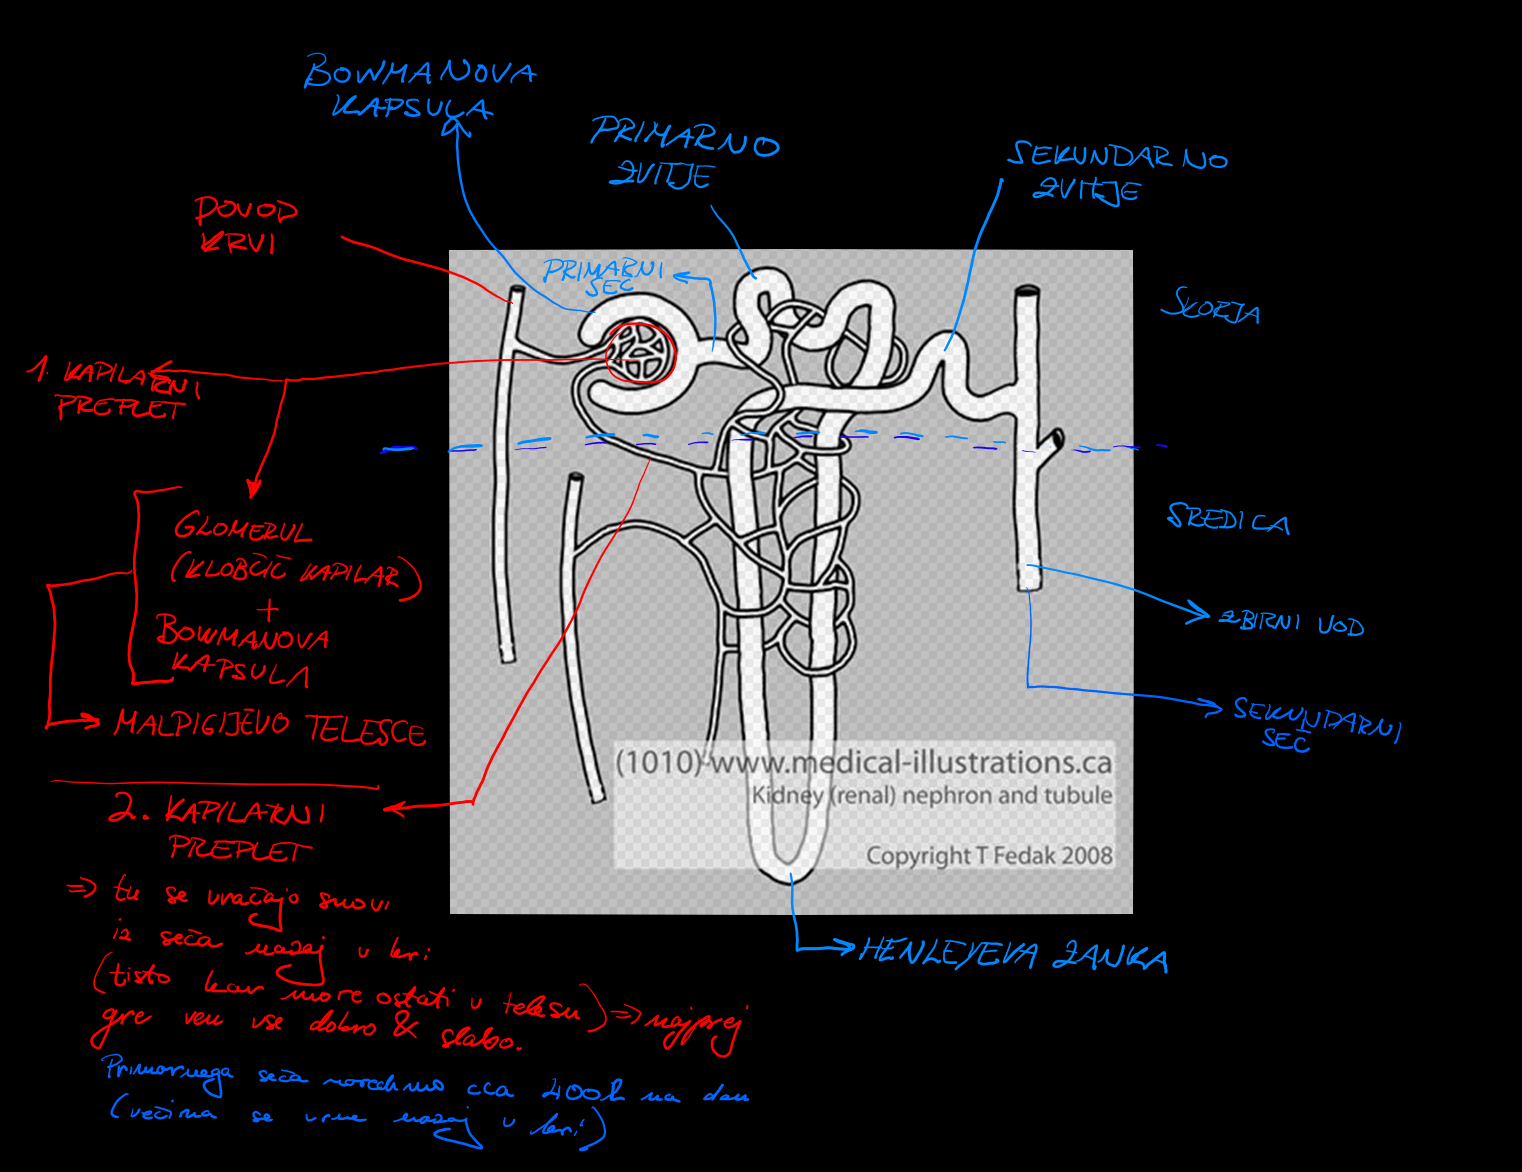 BOWMANOVA
KAPSULA
PRIMARNO
ZVITJE
SEKUNDARNO
ZVITJE
DOVOD
KRVI
PRIMARNI
SEČ
SKORJA
1. KAPILARNI
PREPLET
GLOMERUL
(KLOBČIČ KAPILAR)
+
BOWMANOVA
KAPSULA
MALPIGIJEVO TELESCE
SREDICA
ZBIRNI VOD
SEKUNDARNI
SEČ
(1010) www.medical-illustrations.ca
Kidney (renal) nephron and tubule
Copyright T Fedak 2008
HENLEYEVA ZANKA
2. KAPILARNI
PREPLET
=> tu se vračajo snovi
iz seča nazaj v kri
(tisto kar more ostati v telesu) => najprej
gre ven vse dobro & slabo.
Primarnega seča naredimo cca 400l na dan
(večina se vrne nazaj v kri)